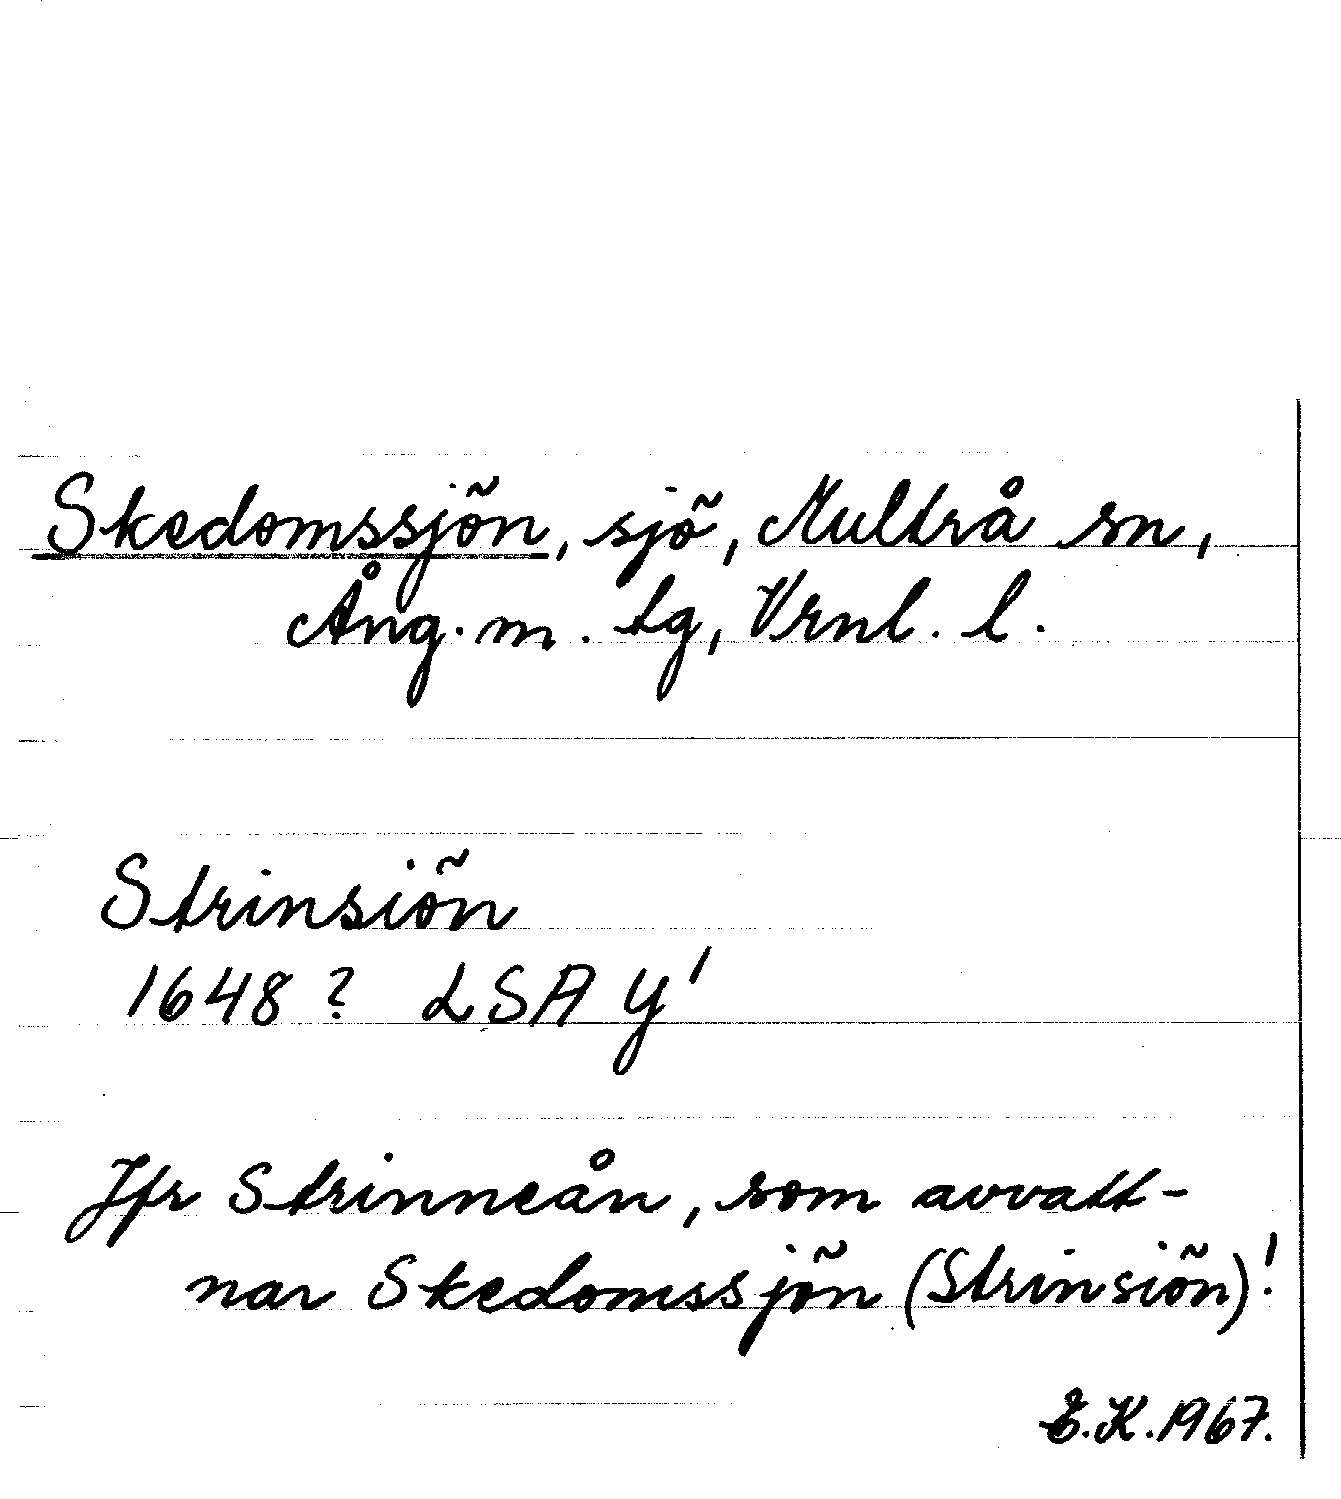 Skedomssjön, sjö, Multrå sn,
Ång. m. tg, Vrnl. l.
Strinsiön
1648? LSA Y'
Jfr Strinneån, som avvatt-
nar Skedomssjön (Strinsiön)!
E.K. 1967.